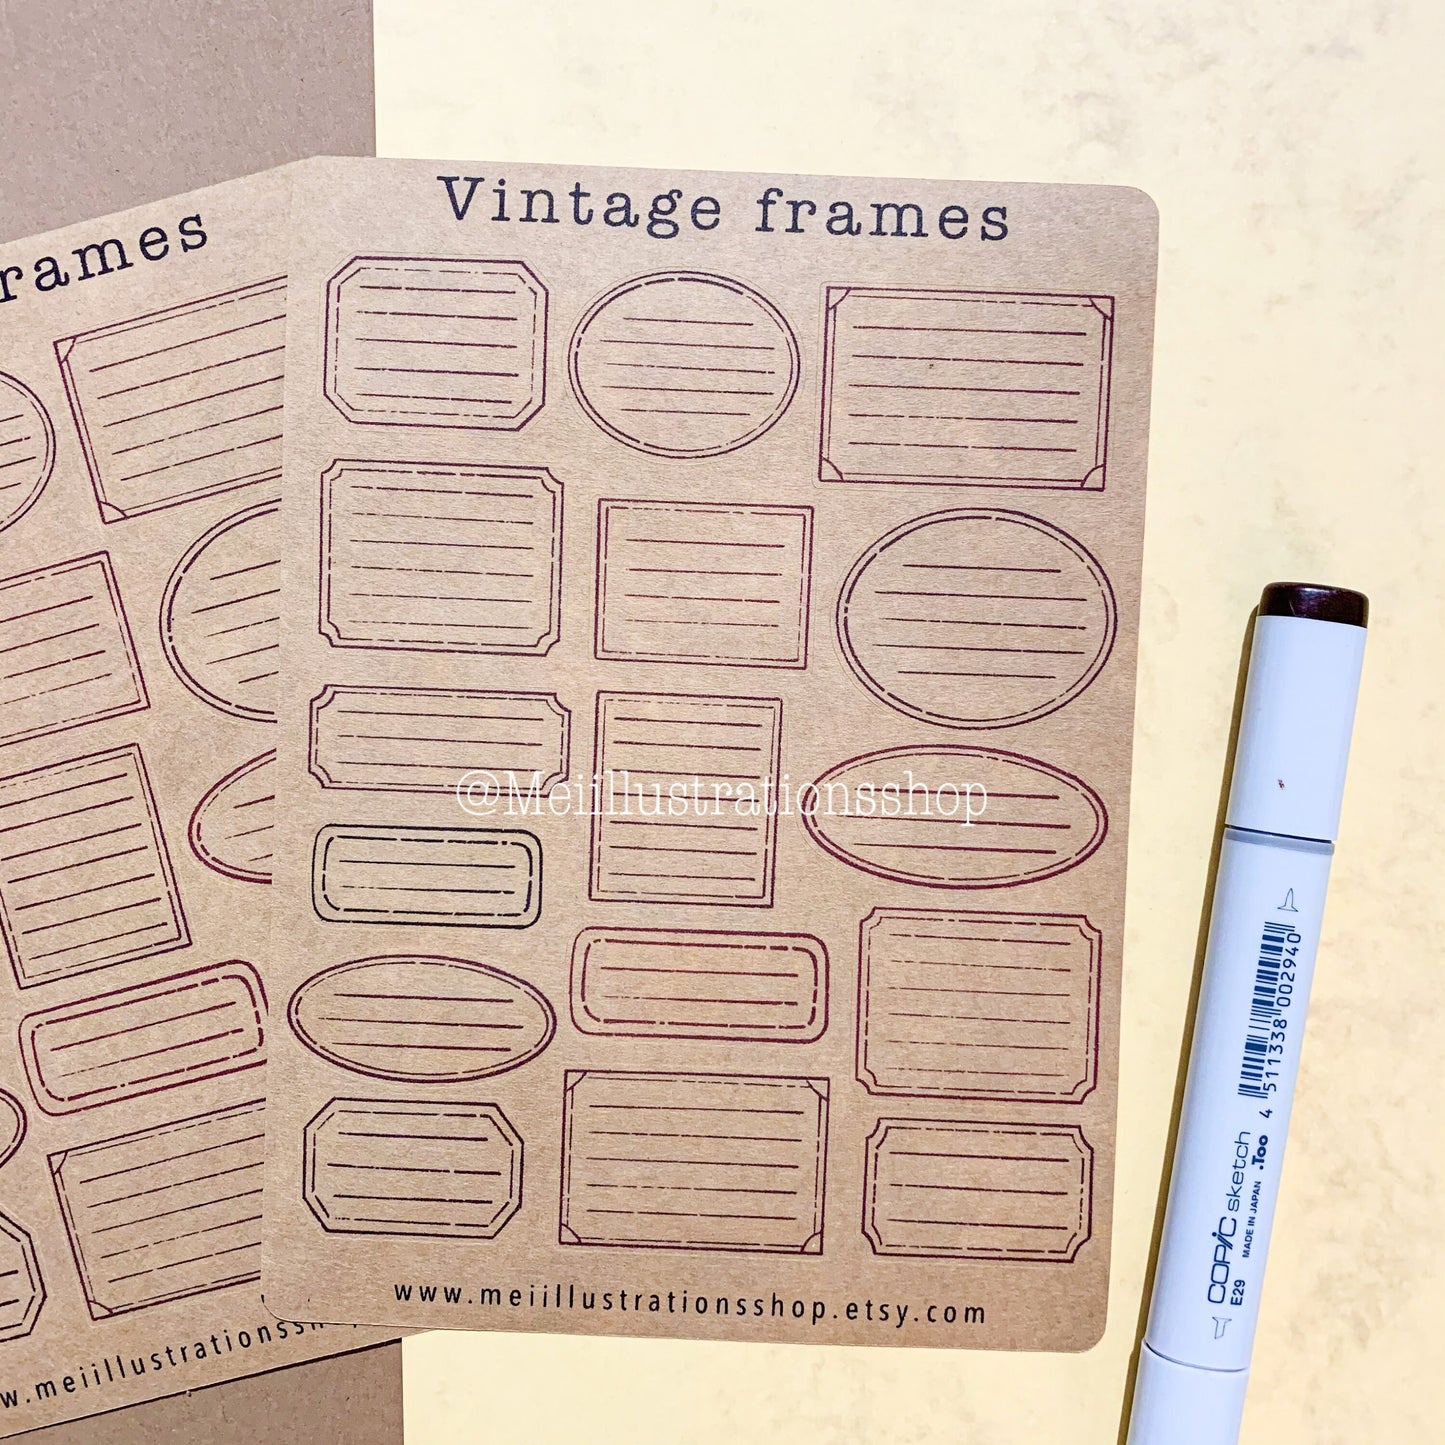 Vintage frames
rames
@Meiillustrationsshop
www.meiillustrationsshop.etsy.com
w.meiillustrationssh
COPIC sketch
E29
MADE IN JAPAN
.Too
4 511338 002940